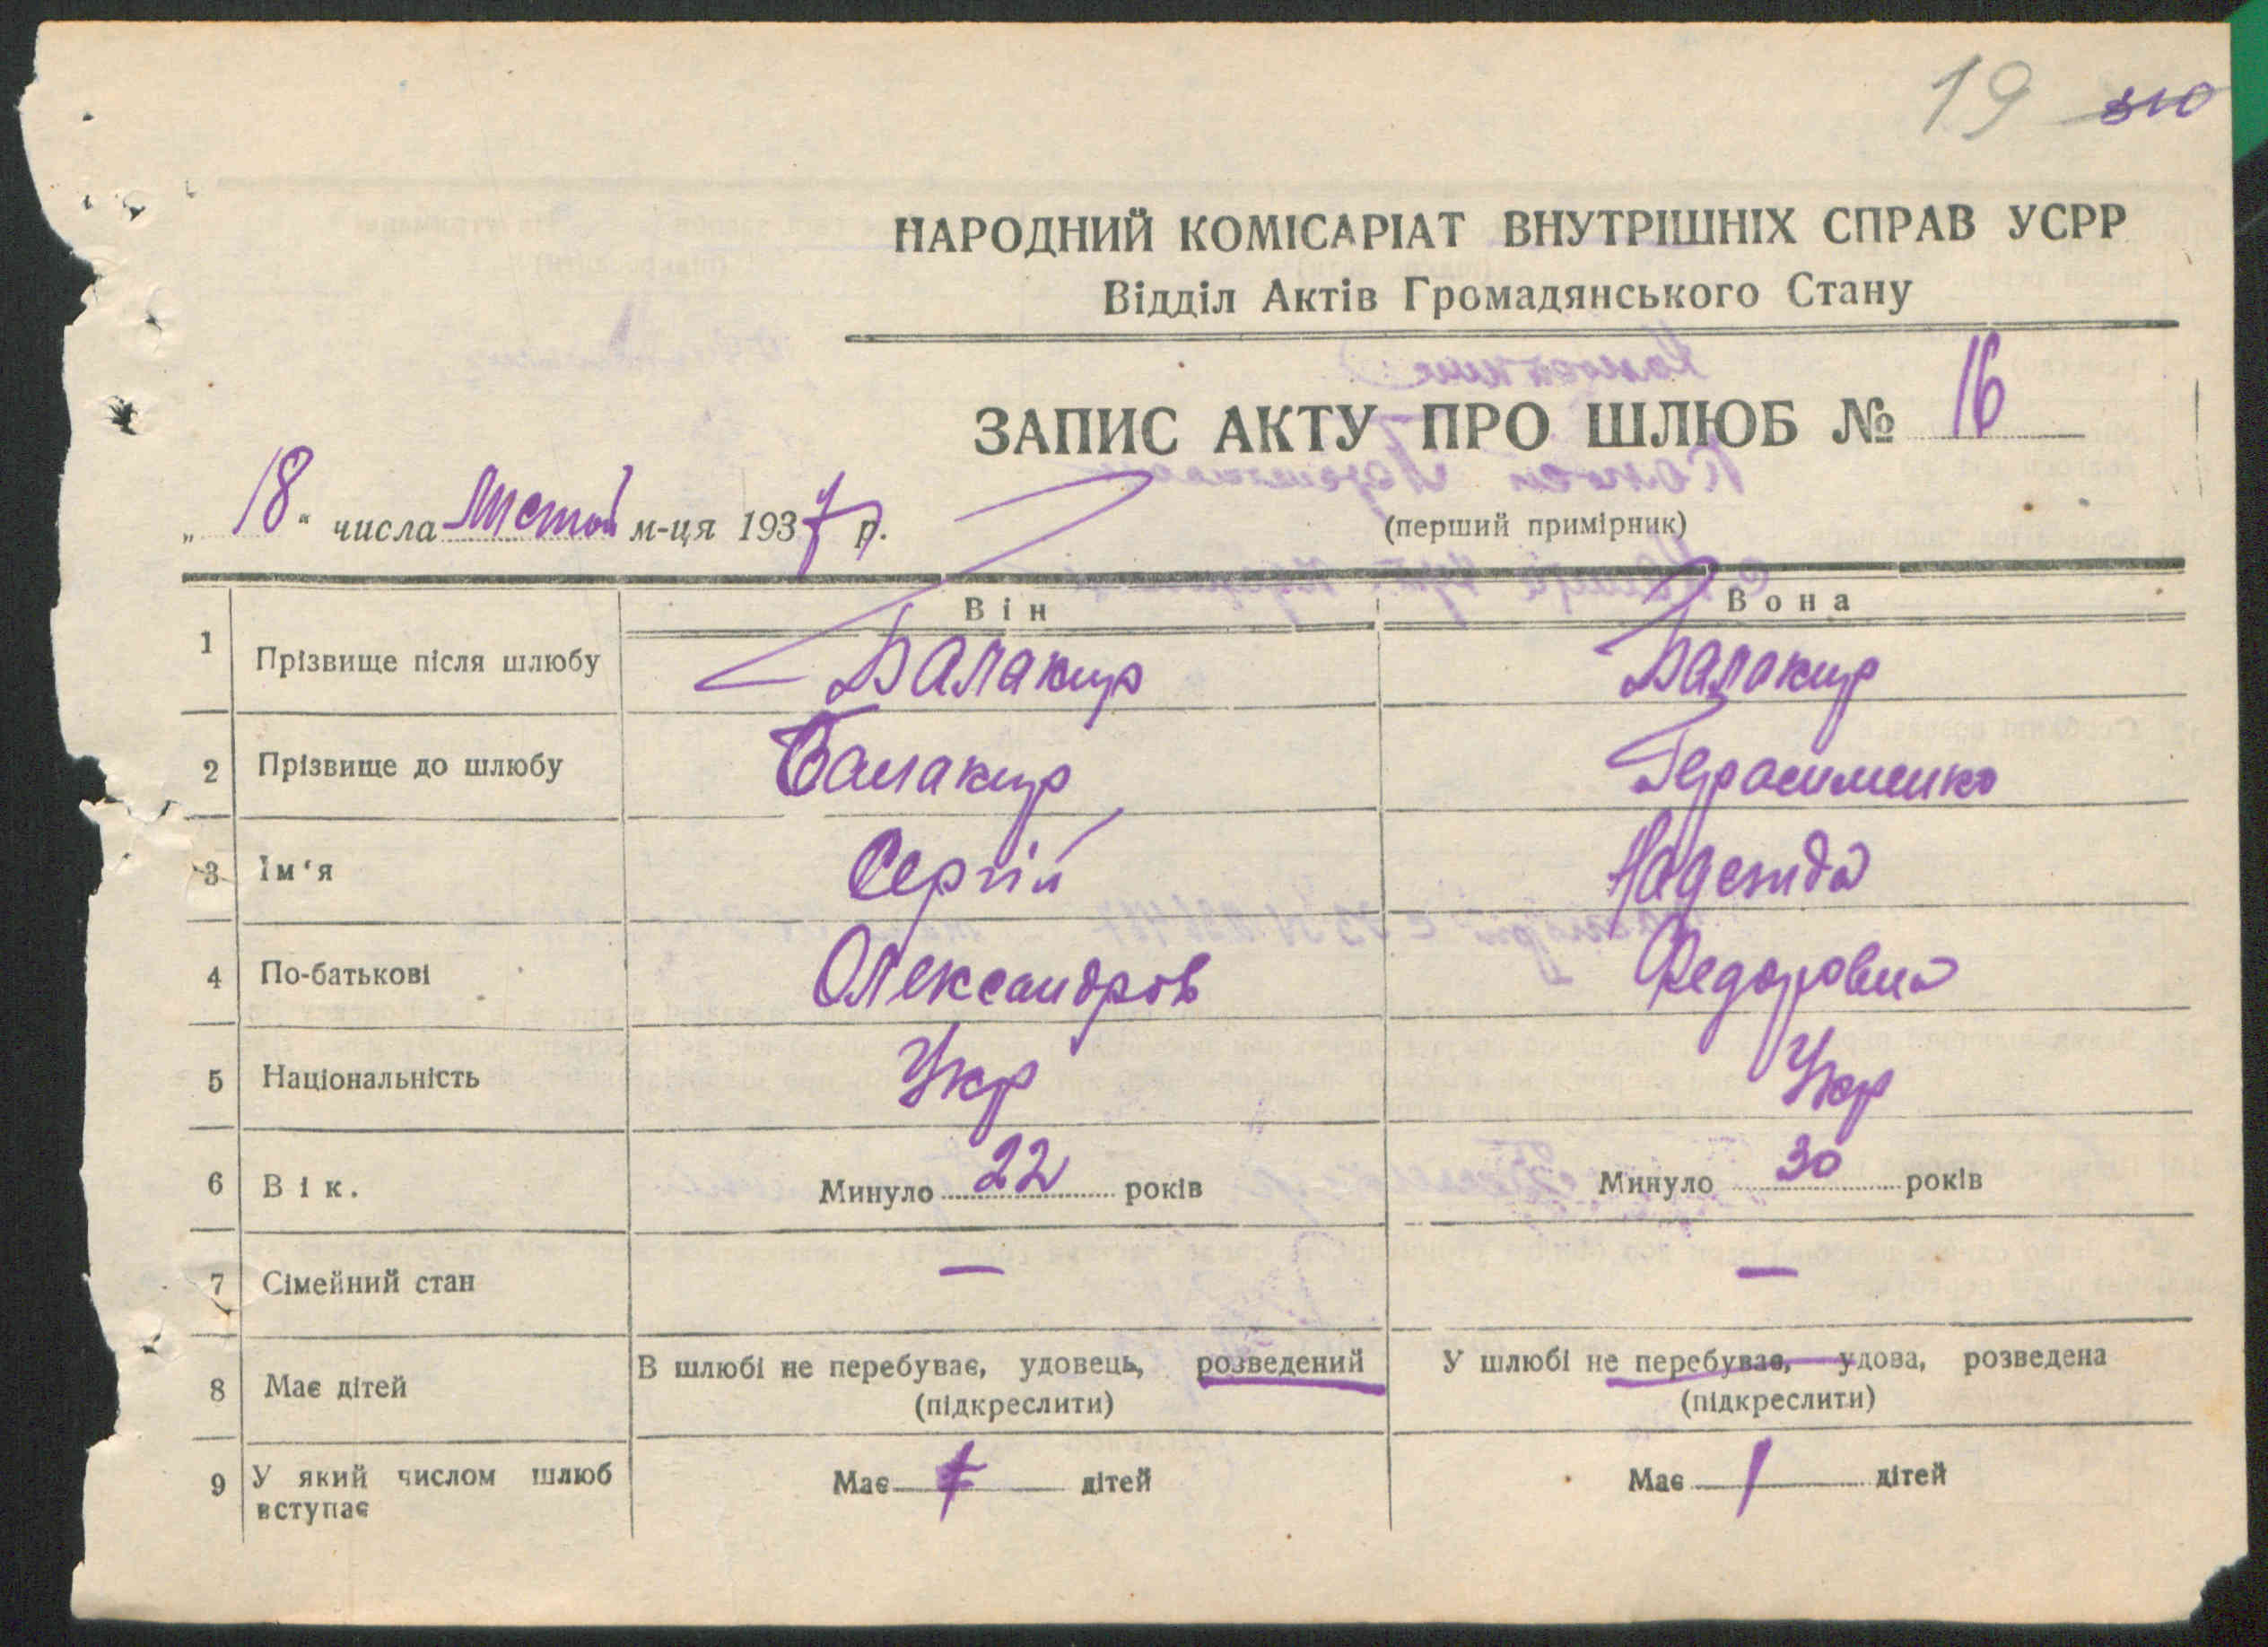 19 310
НАРОДНИЙ КОМІСАРІАТ ВНУТРІШНІХ СПРАВ УСРР
Відділ Актів Громадянського Стану
ЗАПИС АКТУ ПРО ШЛЮБ № 16
„ 18 “ числа листоп м-ця 1937 р.
(перший примірник)
Він Вона
1 Прізвище після шлюбу Балакир Балакир
2 Прізвище до шлюбу Балакир Герасименко
3 Ім'я Сергій Надежда
4 По-батькові Олександров Федоровна
5 Національність Укр Укр
6 Вік. Минуло 22 років Минуло 30 років
7 Сімейний стан — —
8 Має дітей В шлюбі не перебуває, удовець, розведений У шлюбі не перебуває, удова, розведена
(підкреслити) (підкреслити)
9 У який числом шлюб Має дітей Має / дітей
вступає